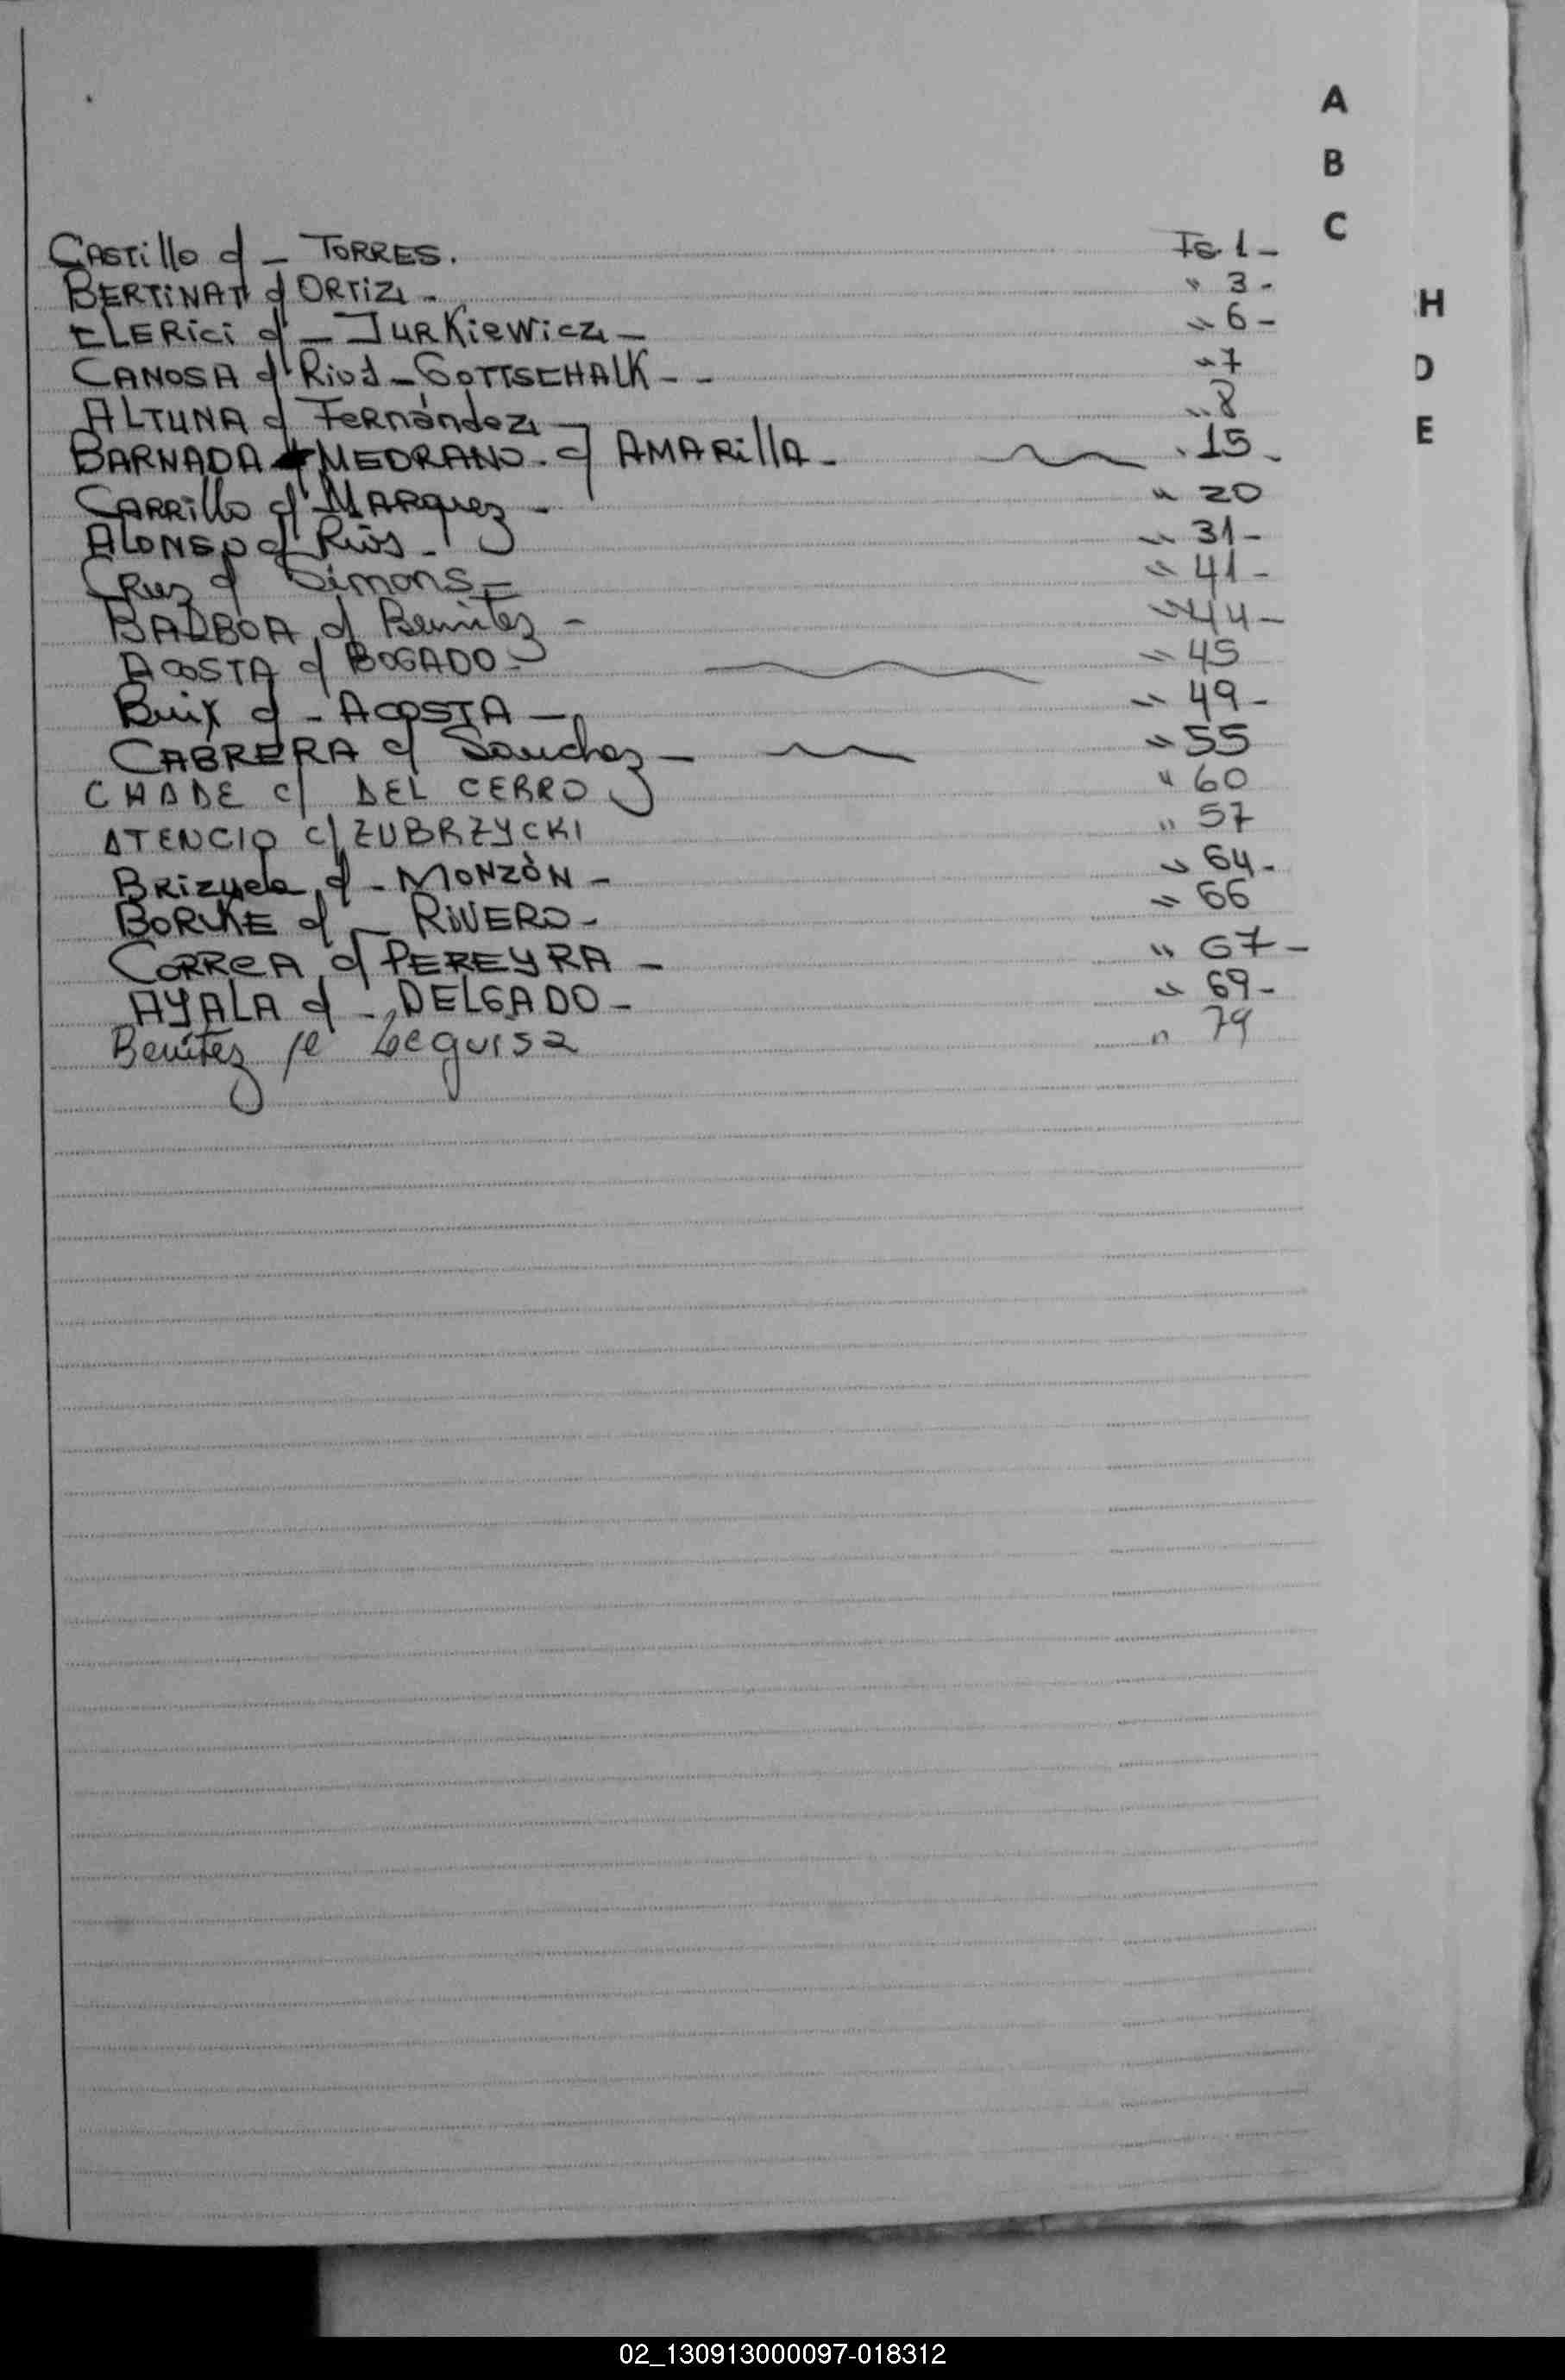 A
B
C
H
D
E
CASTillo c/ - TORRES. Fº 1 -
BERTINATI c/ ORTIZ - " 3 -
CLERICI c/ - JURKIEWICZ - " 6 -
CANOSA c/ Rios - GOTTSCHALK - - " 7
ALTUNA c/ FERNández - " 8
BARNADA MEDRANO - c/ AMARIllA - " 15 -
CARRIllo c/ MARquez - " 20
ALONSO c/ Ríos - " 31 -
CRuz c/ Simons - " 41 -
BALBOA c/ Benitez - " 44 -
ACOSTA c/ BOGADO - " 45
Buix c/ - ACOSTA - " 49 -
CABRERA c/ Sanchez - " 55
CHADE c/ DEL CERRO " 60
ATENCIO c/ ZUBRZYCKI " 57
BRizuela c/ - MONZÒN - " 64 -
c/ - RIVERO - " 66
CORREA c/ PEREYRA - " 67 -
AYALA c/ - DELGADO - " 69 -
Benítez Leguisa " 79
02_130913000097-018312